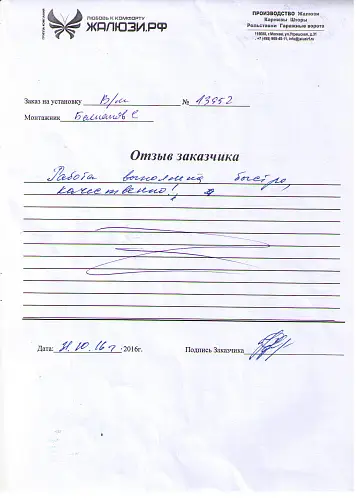 ЛЮБОВЬ К КОМФОРТУ
ЖАЛЮЗИ.РФ
ПРОИЗВОДСТВО Жалюзи
Карнизы Шторы
Рольставни Гаражные ворота
Заказ на установку В/м № 13952
Монтажник
Отзыв заказчика
Работа выполнена быстро,
качественно!
Дата: 31.10.16г. 2016г.
Подпись Заказчика